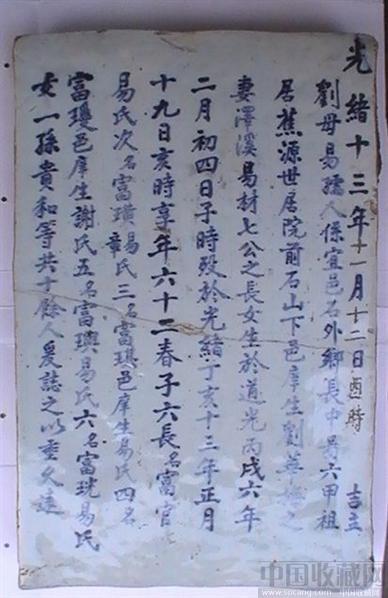 光緒十三年十一月十二日酉時 吉立
劉母易孺人係宜邑石外鄉長中啚六甲祖
居蕉源世居院前石山下邑庠生劉華 之
妻澤溪易材七公之長女生於道光丙戌六年
二月初四日子時歿於光緒丁亥十三年正月
十九日亥時享年六十二春子六長名富官
易氏次名富璜易氏章氏三名富琪邑庠生易氏四名
富瓊邑庠生謝氏五名富璵易氏六名富珖易氏
女一孫貴和等共十餘人爰誌之以垂久遠
中国收藏网
www.socang.com 中国收藏网